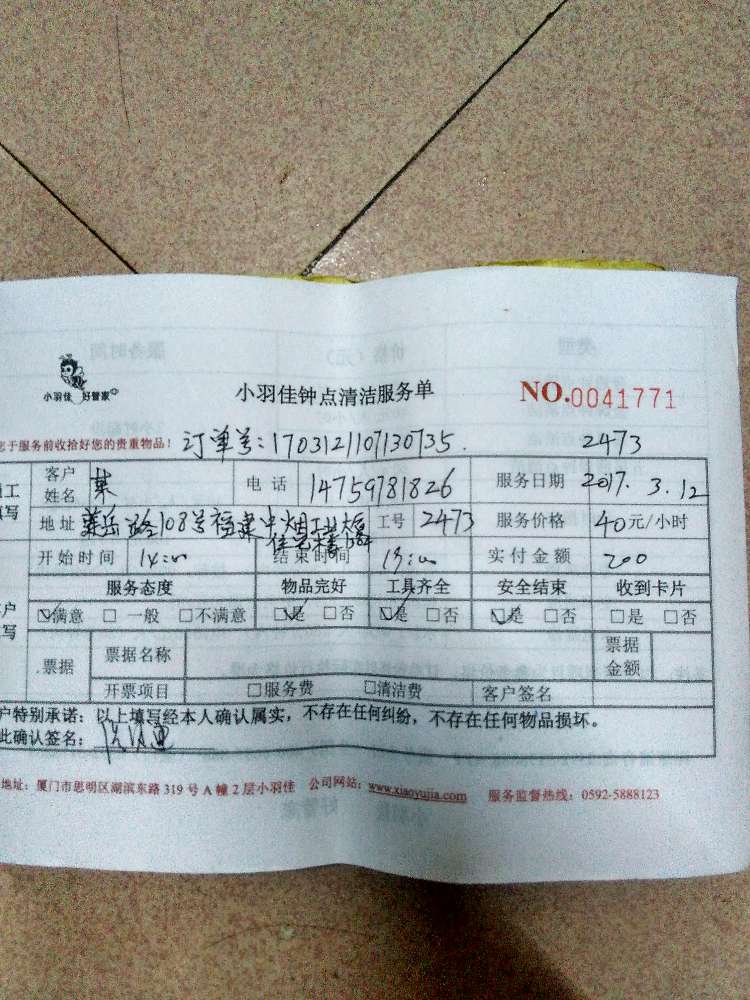 小羽佳 好管家
小羽佳钟点清洁服务单
NO.0041771
您于服务前收拾好您的贵重物品！ 订单号：1703121107130735. 2473
员工 客户姓名 叶 电话 14759781826 服务日期 2017. 3. 12
填写 地址 莲岳路108号福建中烟工业大厦 工号 2473 服务价格 40元/小时
开始时间 14:00 结束时间 19:00 实付金额 200
服务态度 物品完好 工具齐全 安全结束 收到卡片
客户 ☑满意 □一般 □不满意 ☑是 □否 ☑是 □否 ☑是 □否 □是 □否
填写 票据 票据名称 票据金额
开票项目 □服务费 □清洁费 客户签名
户特别承诺：以上填写经本人确认属实，不存在任何纠纷，不存在任何物品损坏。
此确认签名：
地址：厦门市思明区湖滨东路319号A幢2层小羽佳 公司网站：www.xiaoyujia.com 服务监督热线：0592-5888123